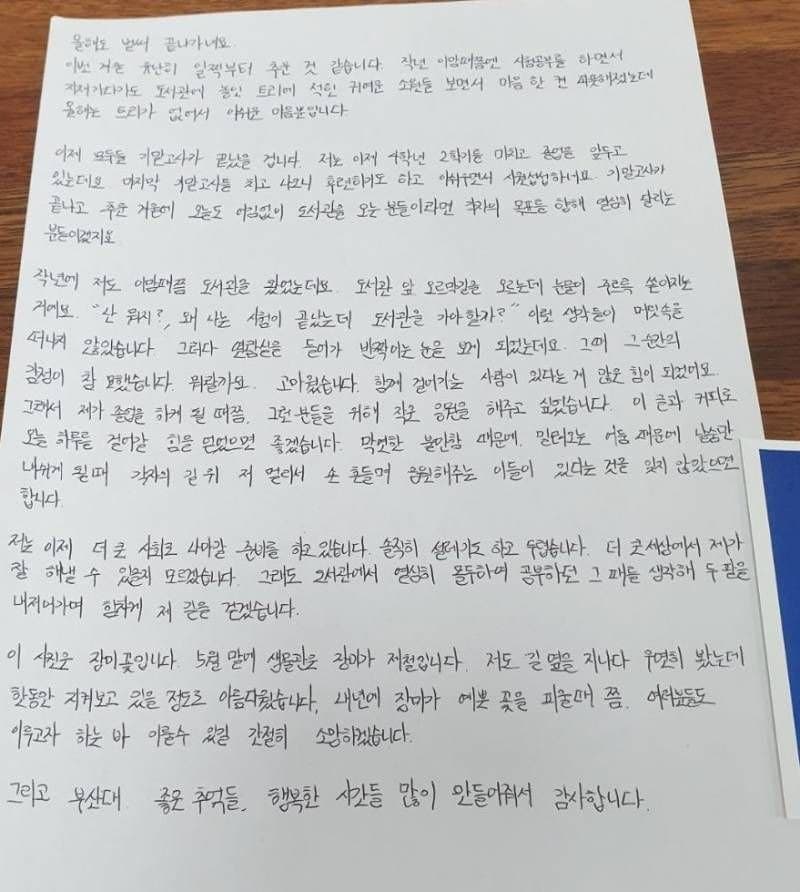 올해도 벌써 끝나가네요.
이번 겨울 유난히 일찍부터 추운 것 같습니다 작년 이맘때쯤엔 시험공부를 하면서
지쳐가다가도 도서관에 놓인 트리에 적힌 귀여운 소원들 보면서 마음 한 켠 따뜻해졌는데
올해는 트리가 없어서 아쉬운 마음뿐입니다
이제 모두들 기말고사가 끝났을 겁니다. 저는 이제 4학년 2학기를 마치고 졸업을 앞두고
있는데요 마지막 기말고사를 치고 나오니 후련하기도 하고 아쉬우면서 시원섭섭하네요. 기말고사가
끝나고 추운 겨울에 오늘도 어김없이 도서관을 오는 분들이라면 각자의 목표를 향해 열심히 달리는
분들이겠지요
작년에 저도 이맘때쯤 도서관을 왔었는데요. 도서관 앞 오르막길을 오르는데 눈물이 주르륵 쏟아지는
거예요. " 뭐지?, 왜 나는 시험이 끝났는데 도서관을 가야 할까?" 이런 생각들이 머릿속을
떠나지 않았습니다. 그러다 열람실을 들어가 반짝이는 눈을 보게 되었는데요. 그때 그 순간의
감정이 참 묘했습니다. 뭐랄까요. 고마웠습니다. 함께 걸어가는 사람이 있다는 게 많은 힘이 되었어요.
그래서 제가 졸업을 하게 될 때쯤, 그런 분들을 위해 작은 응원을 해주고 싶었습니다. 이 글과 커피로
오늘 하루를 걸어갈 힘을 얻었으면 좋겠습니다. 막연한 불안함 때문에, 밀려오는 어둠 때문에 한숨만
내쉬게 될 때 각자의 길 위 저 멀리서 손 흔들며 응원해주는 이들이 있다는 것을 잊지 않았으면
합니다.
저는 이제 더 큰 사회로 나아갈 준비를 하고 있습니다. 솔직히 설레기도 하고 두렵습니다. 더 큰 세상에서 제가
잘 해낼 수 있을지 모르겠습니다. 그래도 도서관에서 열심히 몰두하여 공부하던 그 때를 생각해 두 팔을
내저어가며 힘차게 제 길을 걷겠습니다.
이 사진은 장미꽃입니다. 5월 말에 생물관은 장미가 제철입니다. 저도 길 옆을 지나다 우연히 봤는데
한동안 지켜보고 있을 정도로 아름다웠습니다, 내년에 장미가 예쁜 꽃을 피울때 쯤. 여러분들도
이루고자 하는 바 이룰수 있길 간절히 소망하겠습니다.
그리고 부산대 좋은 추억들, 행복한 시간들 많이 만들어줘서 감사합니다.